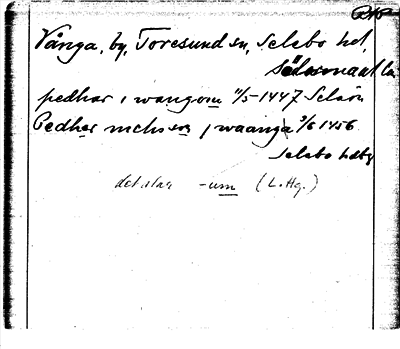 Vånga, by, Toresund sn, Selebo hd,
Södermanl. län
pedhar i wangom 11/5 1447 Selaön
Pedher niclisson j waanga 3/6 1456
Selebo hdbg
det står -um (L. Hg.)